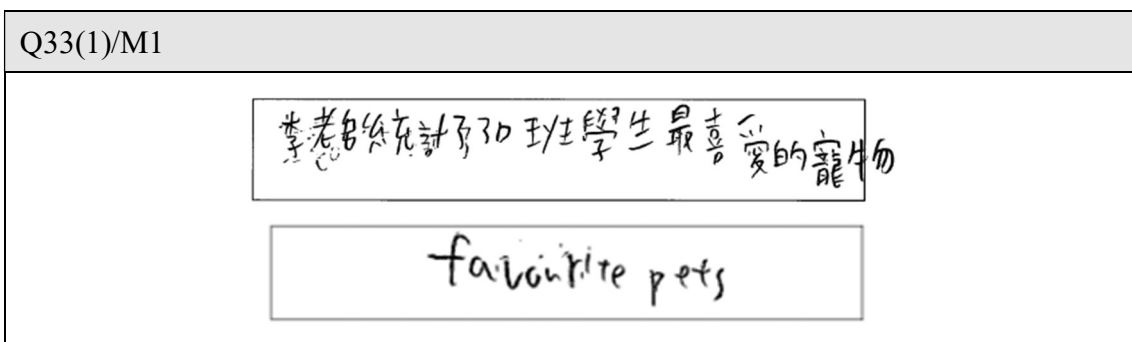 Q33(1)/M1
李老師統計了3D班學生最喜愛的寵物
favourite pets